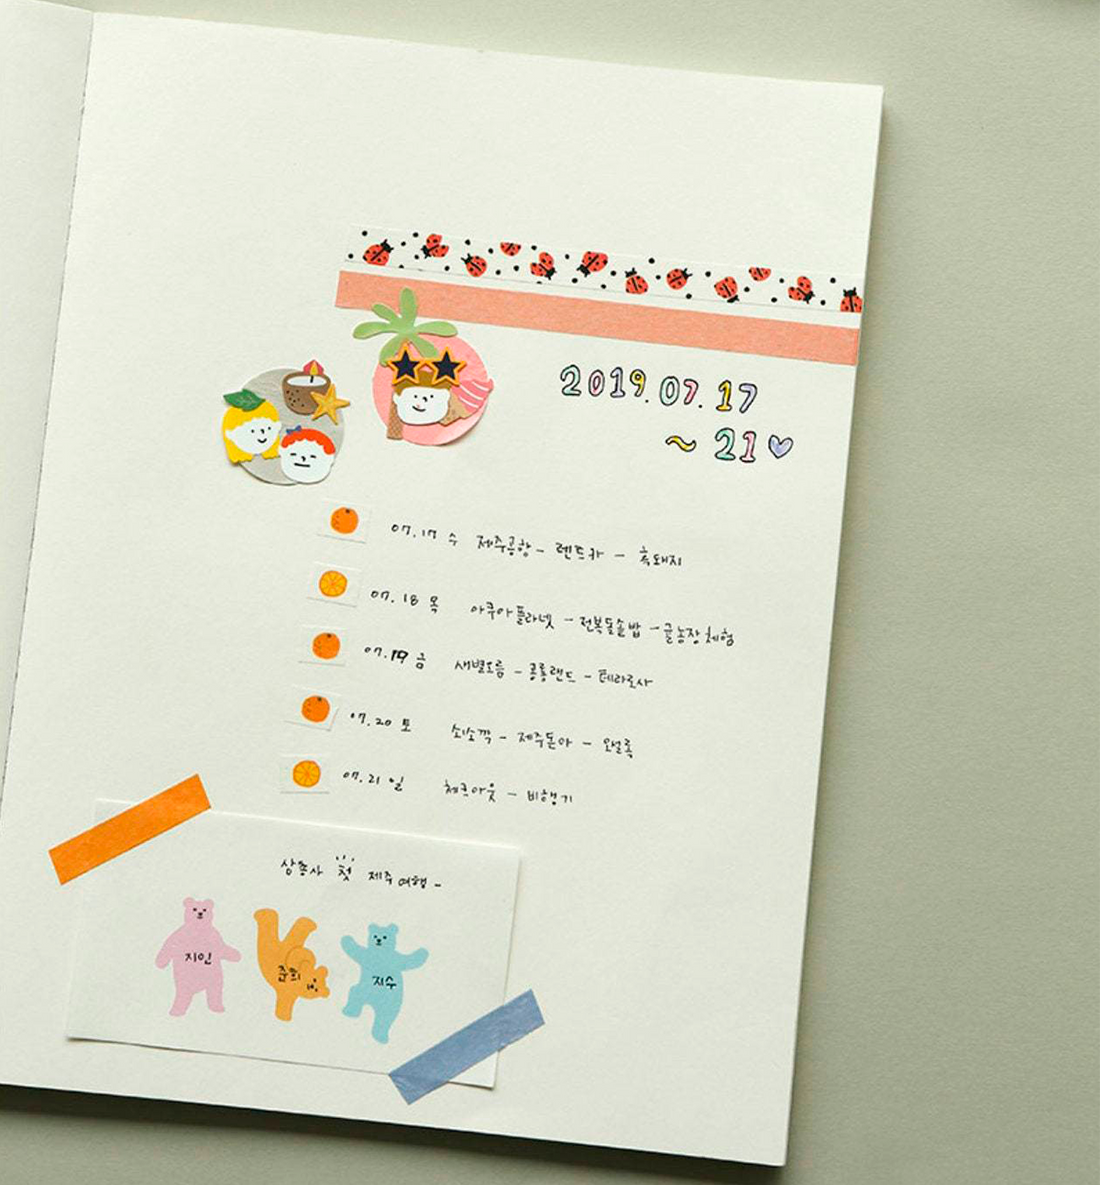 2019.07.17
~ 21♡
07.17 수 제주공항 - 렌트카 - 흑돼지
07.18 목 아쿠아플라넷 - 전복돌솥밥 - 귤농장체험
07.19 금 새별오름 - 통통랜드 - 테라로사
07.20 토 쇠소깍 - 제주돈아 - 오설록
07.21 일 체크아웃 - 비행기
삼총사 첫 제주여행 -
지인
준희
지수